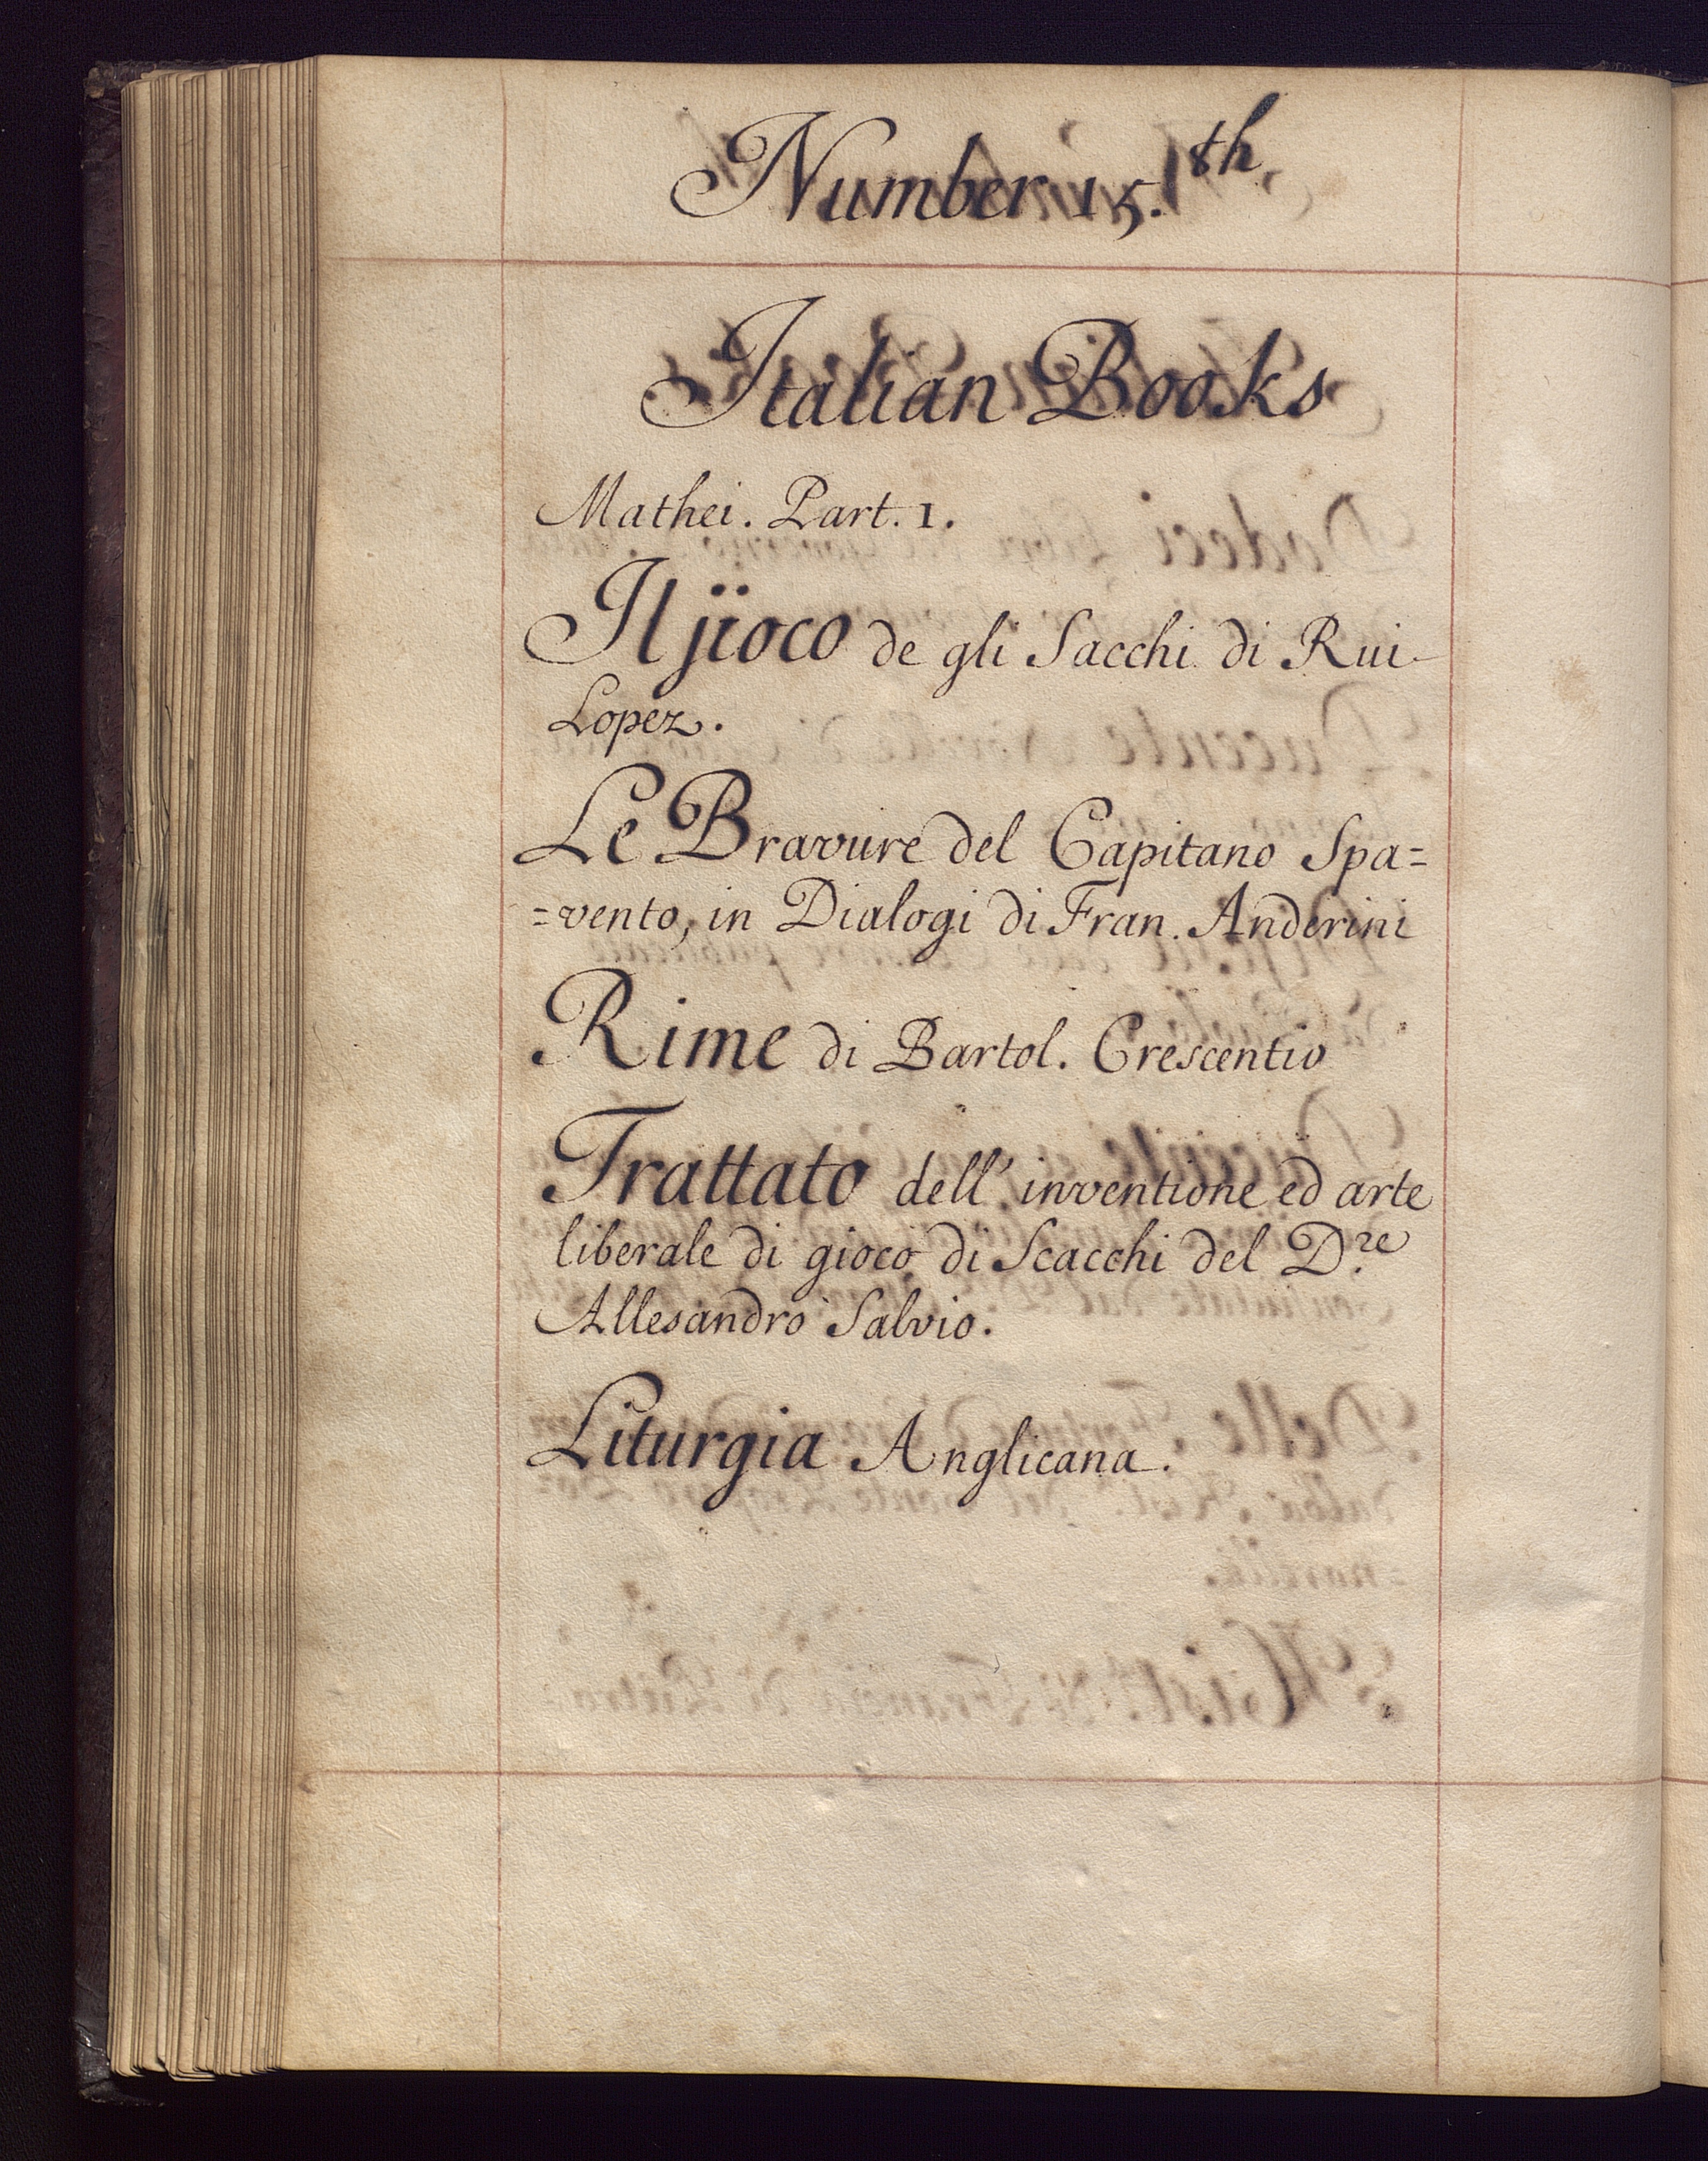 Number 15.th
Italian Books
Mathei. Part. 1.
Il jioco de gli Sacchi di Rui
Lopez.
Le Bravure del Capitano Spa=
=vento, in Dialogi di Fran. Anderini
Rime di Bartol. Crescentio
Trattato dell' inventione ed arte
liberale di gioco di Scacchi del D.re
Allesandro Salvio.
Liturgia Anglicana.